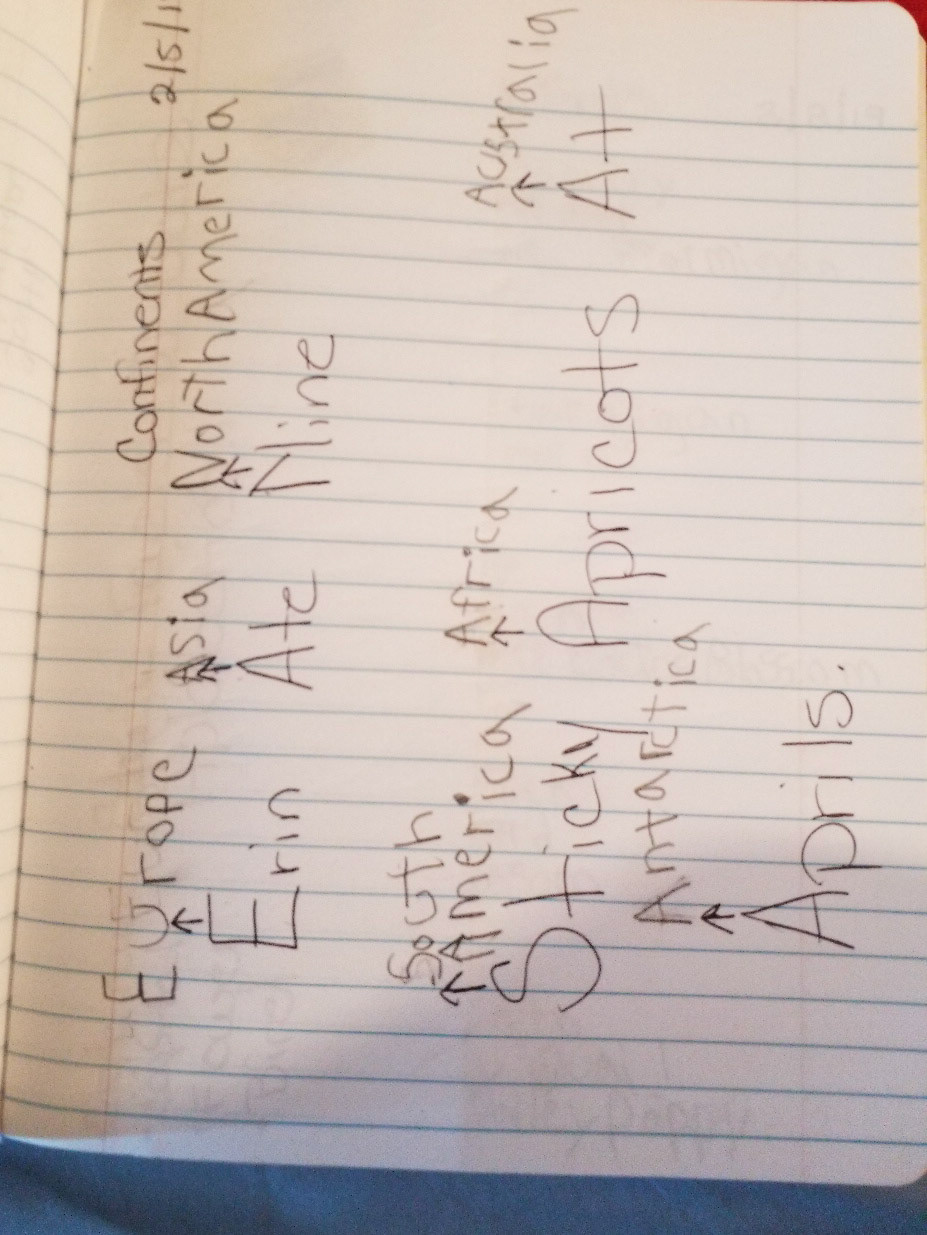 Continents 2/5/1
Europe Asia North America
Erin Ate Nine
South
America Africa Australia
Sticky Apricots At
Antarctica
Aprils.